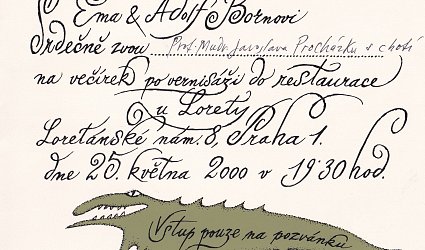 Ema & Adolf Bornovi
Srdečně zvou Prof. Mudr. Jaroslava Procházku s chotí
na večírek po vernisáži do restaurace
u Lorety
Loretánské nám. 8, Praha 1.
dne 25. května 2000 v 19.30 hod.
Vstup pouze na pozvánku